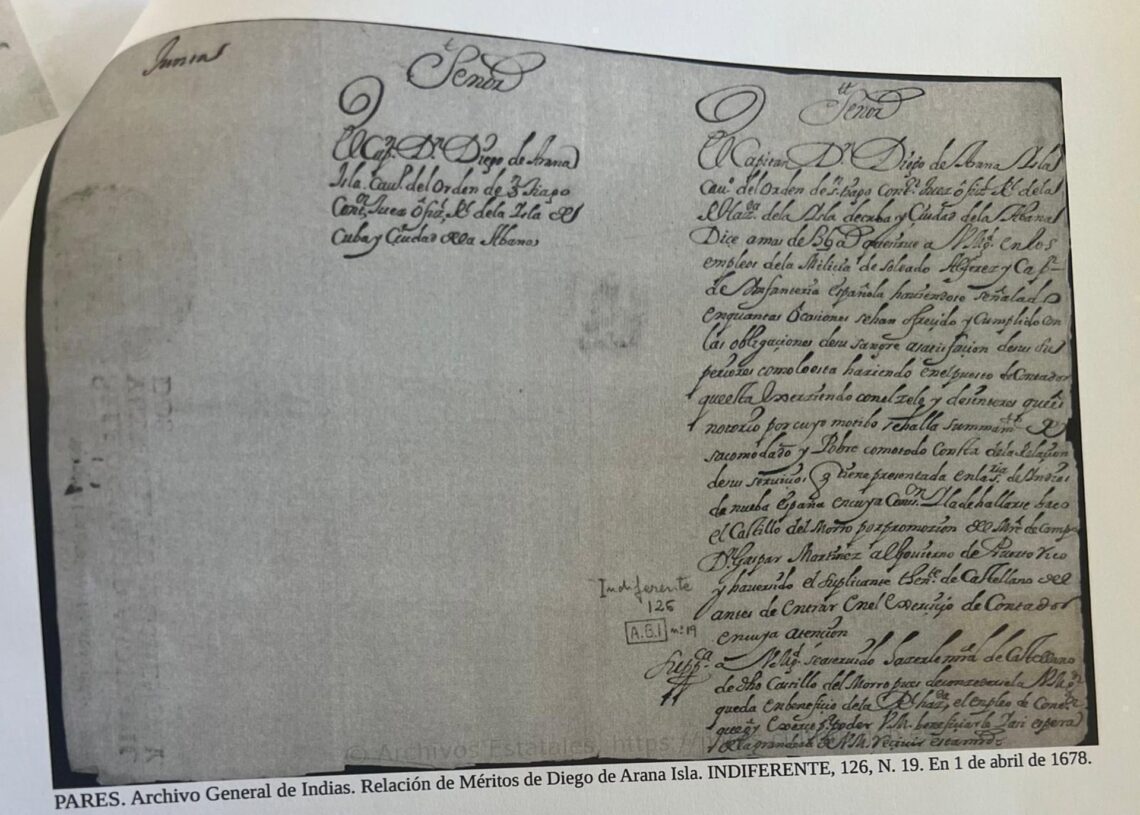 Juntas
Señor
El Capn. Dn. Diego de Arana
Isla. Cavo. del Orden de S. tiago
Contor. Juez ofizl. Rl. dela Isla de
Cuba y Ciudad dela Abana
Señor
El Capitan Dn. Diego de Arana Isla
Cavo. del Orden de S. tiago Contor. Juez ofizl. Rl. dela
Rl. Hazda. dela Isla decuba y Ciudad dela Abana
Dice amas de que sirve a V.Mgd. enlos
empleos dela Milicia de soldado Alferez y Capn.
de Infanteria española haviendose señalado
enquantas ocasiones sehan ofrecido y Cumplido con
las obligaciones desu sangre asatisfacion desus Su
periores comoloesta haciendo enelpuesto de Contador
queesta exerziendo conelzelo y desinteres quees
notorio por cuyo motibo sehalla summamte. des
acomodado y Pobre comotodo Consta dela Relazion
desus servicios q tiene presentada enla sria. de Indias
de nueba españa encuya Conson. hallarse baco
el Castillo del Morro porpromozion del Mre. de Campo
Dn. Gaspar Martinez al govierno de Puerto Rico
y haviendo el suplicante thente. de Castellano del
antes de entrar enel exercicio de Contador
encuya atencion
Suppca. a V.Mgd. seaservido hazerle mrd. de Castellano
de dho Castillo del Morro pues V.Mgd.
queda enbeneficio dela Rl. haza. el empleo de Contor.
que oy exerce poder V.M. beneficiarla Pasi espera
dela grandeza de V.M. recivir estamrd.
Indiferente
126
A.G.I nº 19
© Archivos Estatales, https://
PARES. Archivo General de Indias. Relación de Méritos de Diego de Arana Isla. INDIFERENTE, 126, N. 19. En 1 de abril de 1678.